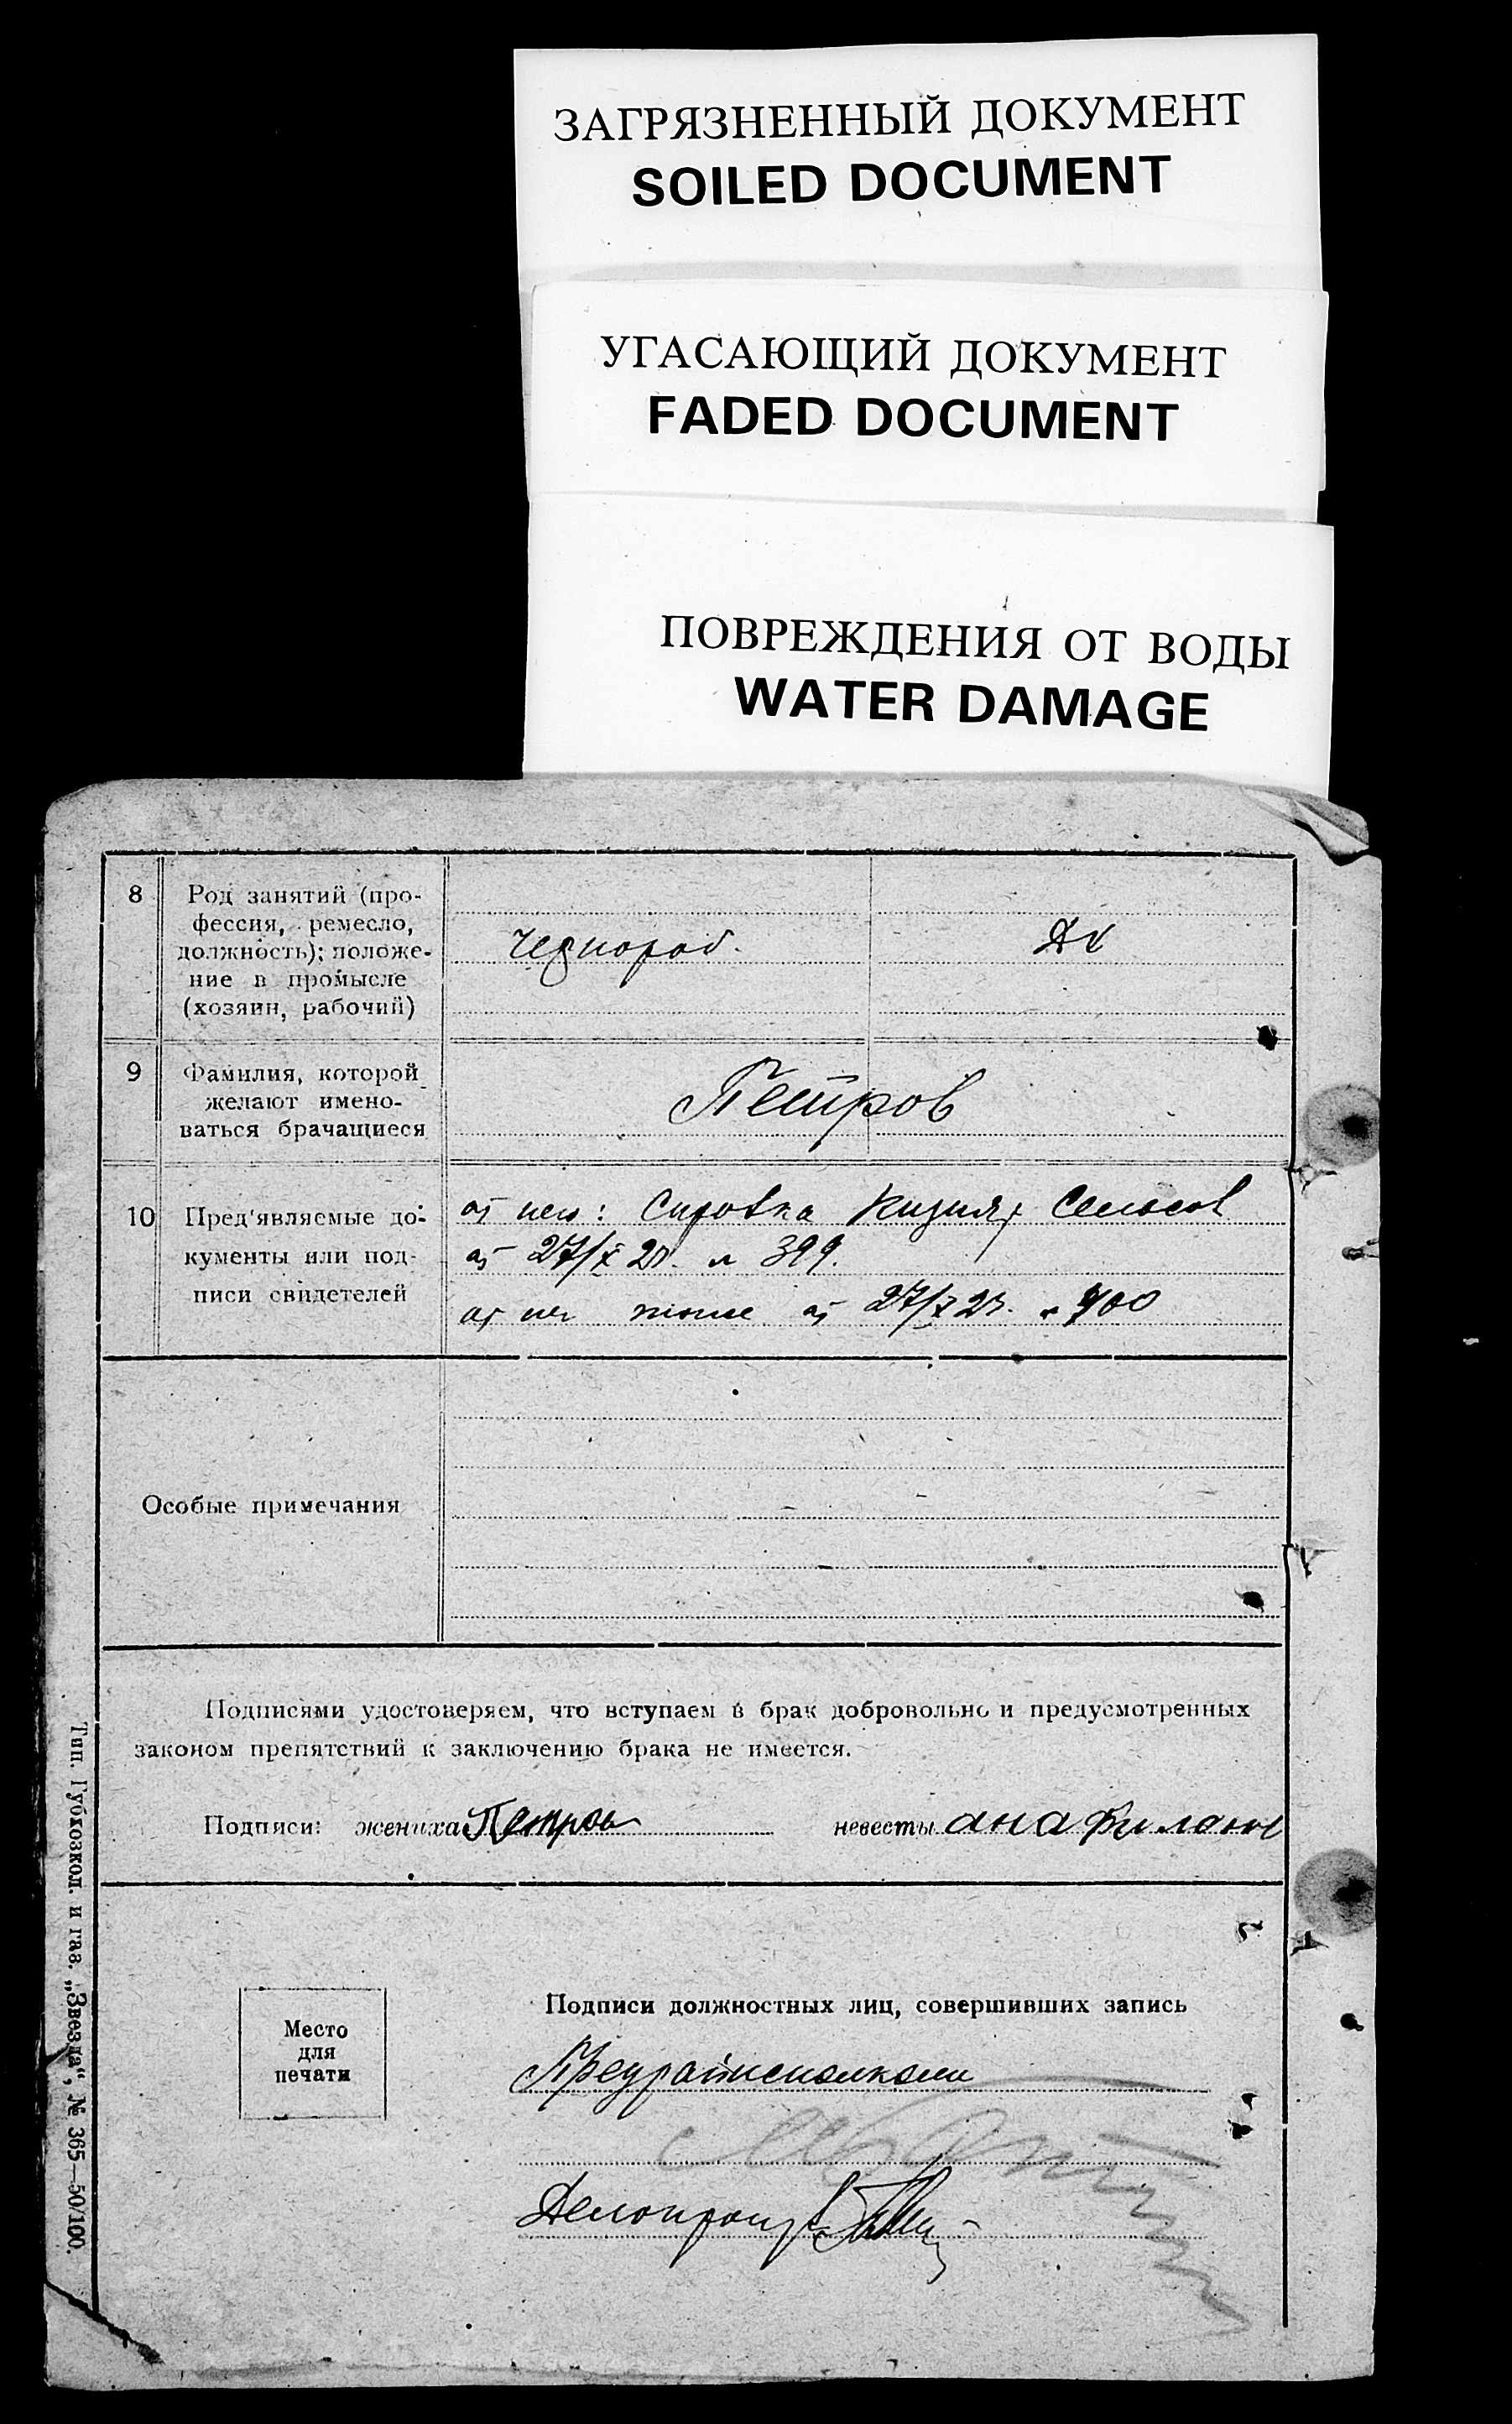 ЗАГРЯЗНЕННЫЙ ДОКУМЕНТ
SOILED DOCUMENT
УГАСАЮЩИЙ ДОКУМЕНТ
FADED DOCUMENT
ПОВРЕЖДЕНИЯ ОТ ВОДЫ
WATER DAMAGE
8
Род занятий (про-
фессия, ремесло,
должность); положе-
ние в промысле
(хозяин, рабочий)
чернораб.
9
Фамилия, которой
желают имено-
ваться брачащиеся
Петров
10
Пред'являемые до-
кументы или под-
писи свидетелей
от него: Справка Сельсов
от 27/X 2 399.
от тоже от 27/X 2 400
Особые примечания
Подписями удостоверяем, что вступаем в брак добровольно и предусмотренных
законом препятствий к заключению брака не имеется.
Подписи: жениха Петров невесты ана
Место
для
печати
Подписи должностных лиц, совершивших запись
Предрайисполкома
Делопроизв
Тип. Губкозкол. и газ. „Звезда“, № 365—50/100.